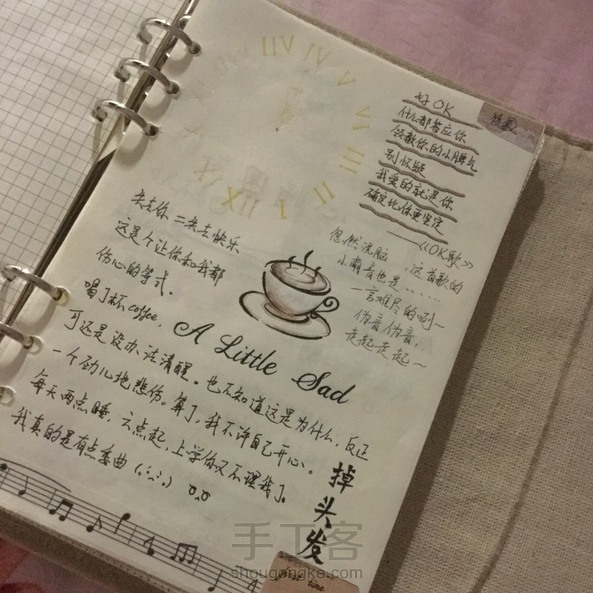 好OK
什么都答应你
领教你的小脾气
别怀疑
我爱的就是你
确定比你更坚定
——《OK歌》
忽然洗脑
小萌音也是……这首歌的
一言难尽的啊~
伪音伪音，
走起走起~
失去你 二失去快乐
这是个让你和我都
伤心的等式。
喝了杯coffee，
A Little Sad
可还是没办法清醒。也不知道这是为什么，反正
一个劲儿地悲伤。算了，我不许自己开心。
每天两点睡，六点起，上学你又不理我了。
我真的是有点委曲
掉头发
手工客
shougongke.com
time